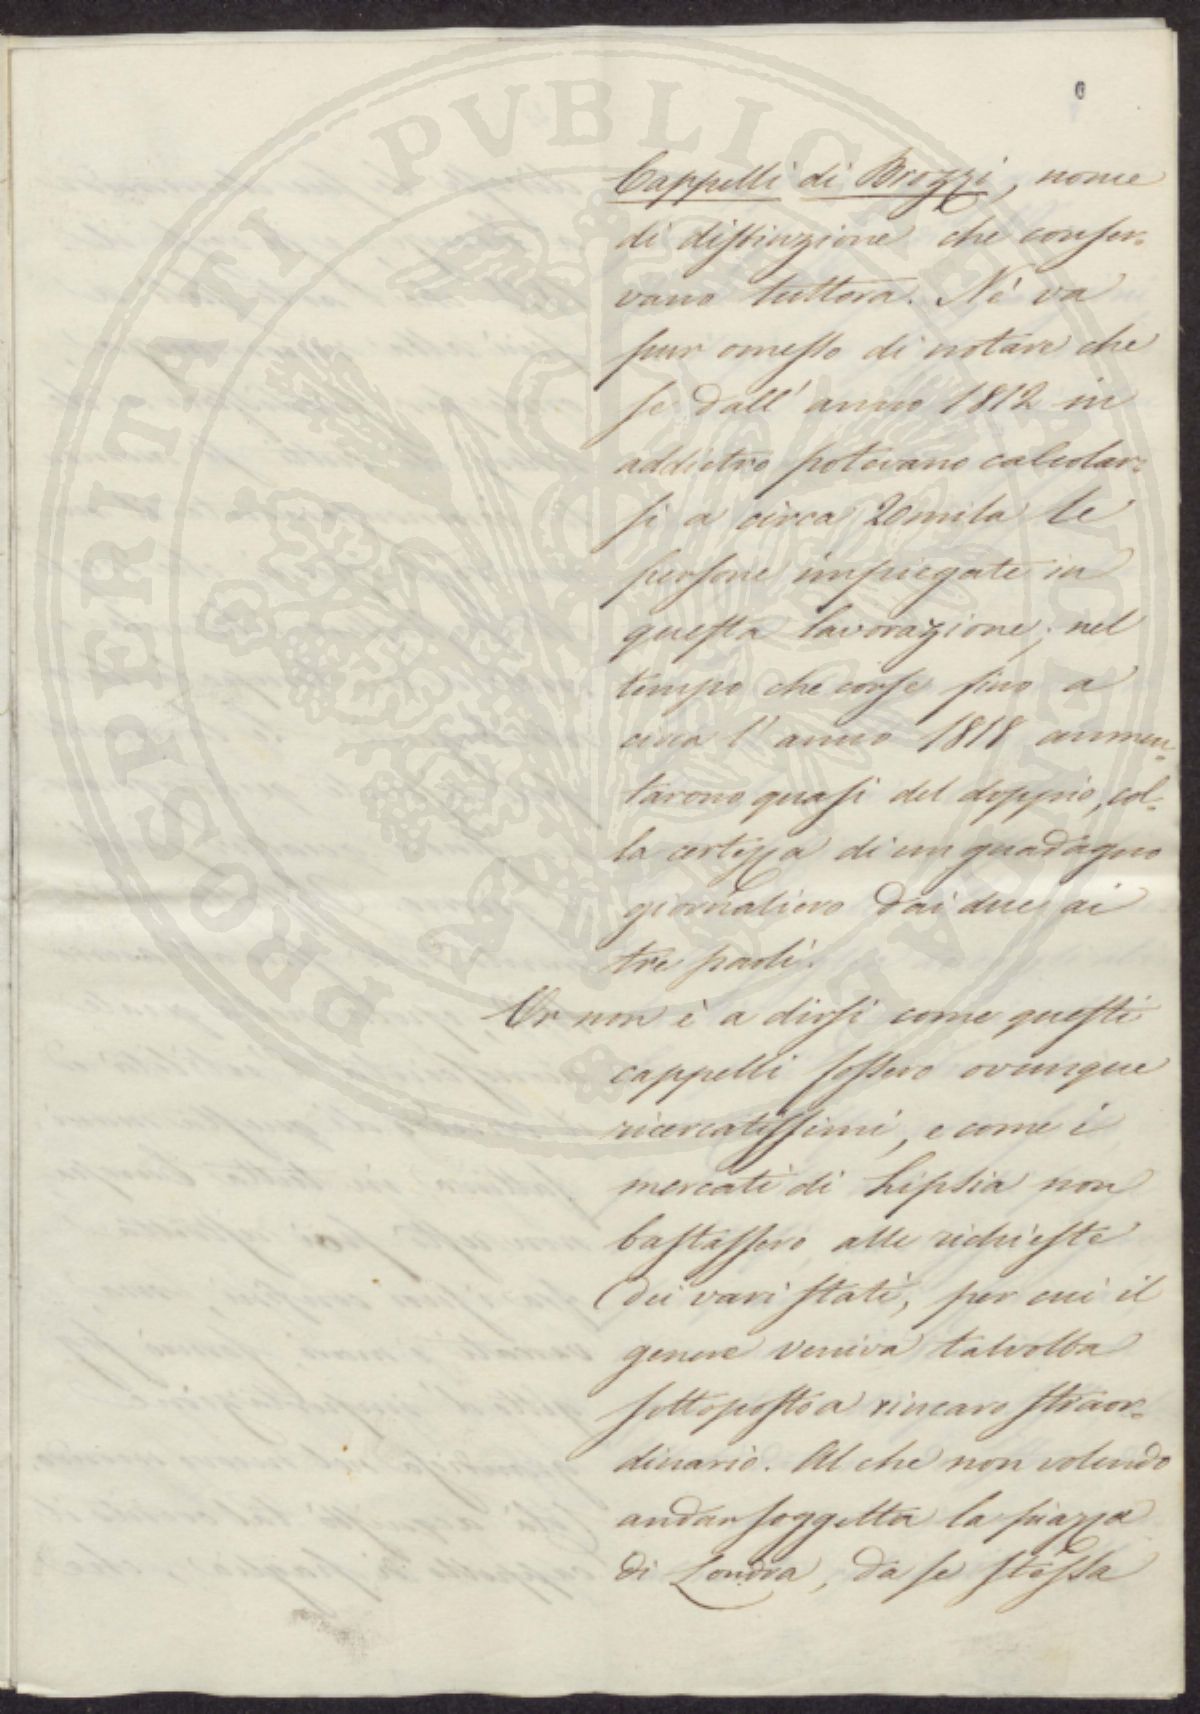 Cappelli di Brozzi, nome
di distinzione che conser-
vano tuttora. Nè va
pur omesso di notare che
se dall' anno 1812 in
addietro potevano calcolar-
si a circa 20mila le
persone impiegate in
questa lavorazione, nel
tempo che corse fino a
circa l' anno 1818 aumen-
tarono quasi del doppio, col-
la certezza di un guadagno
giornaliero dai due ai
tre paoli.
Or non è a dirsi come questi
cappelli fossero ovunque
ricercatissimi, e come i
mercati di Lipsia non
bastassero alle richieste
dei vari stati, per cui il
genere veniva talvolta
sottoposto a rincaro straor-
dinario. Al che non volendo
andar soggetta la piazza
di Londra, da se stessa
PROSPERITATI PVBLICAE AVGENDAE